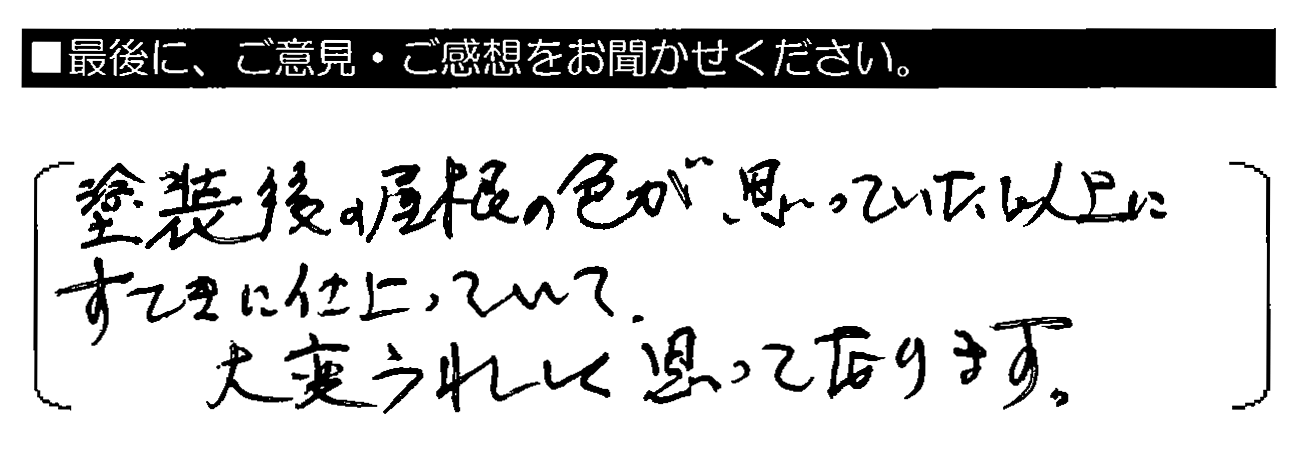 ■最後に、ご意見・ご感想をお聞かせください。
塗装後の屋根の色が、思っていた以上に
すてきに仕上っていて、
大変うれしく思っております。